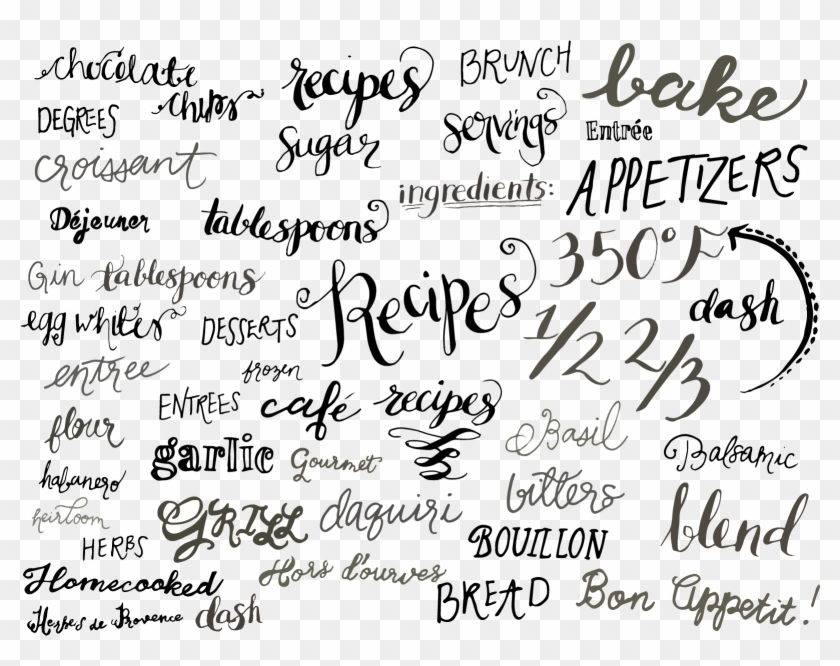 chocolate
chips
recipes
BRUNCH
bake
DEGREES
sugar
servings
Entrée
croissant
ingredients:
APPETIZERS
Déjeuner
tablespoons
350°F
Gin
tablespoons
Recipes
dash
egg whites
DESSERTS
1/2
2/3
entree
frozen
ENTREES
café
recipes
flour
garlic
Gourmet
Basil
Balsamic
habanero
bitters
heirloom
GRILL
daquiri
blend
HERBS
BOUILLON
Homecooked
Hors d'ourves
BREAD
Bon Appetit!
Herbes de Provence
dash